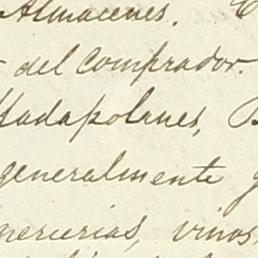 Almacenes.
del comprador.
Madapolanes,
generalmente
mercerias, vinos